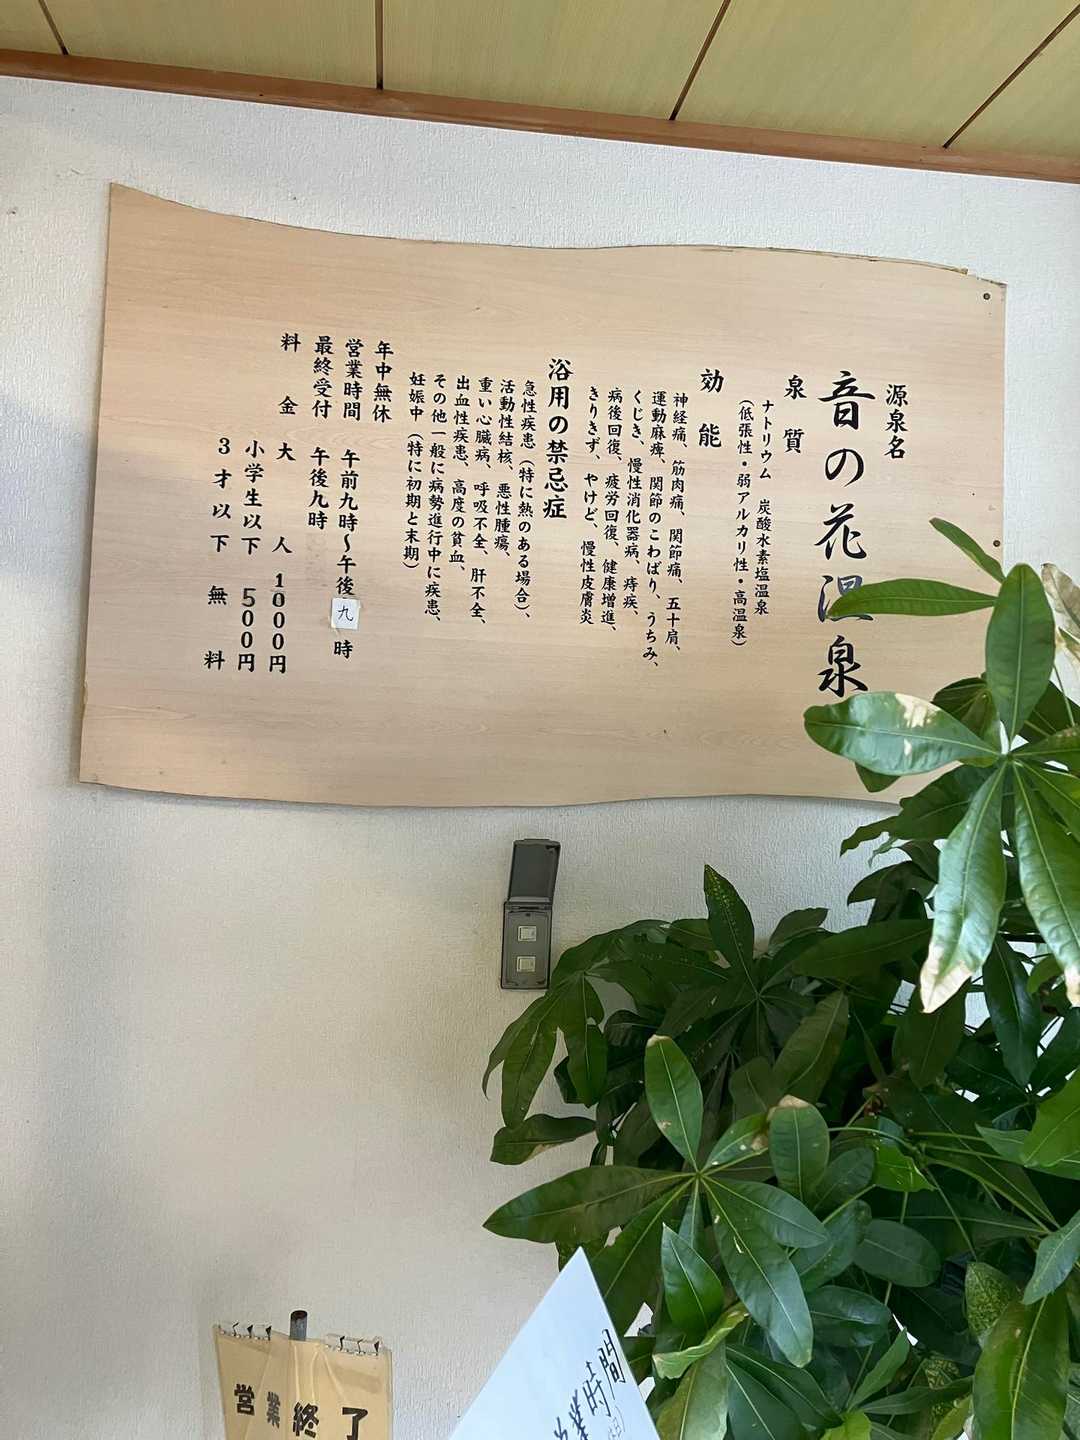 源泉名
音の花温泉
泉質
ナトリウム 炭酸水素塩温泉
(低張性・弱アルカリ性・高温泉)
効能
神経痛、筋肉痛、関節痛、五十肩、
運動麻痺、関節のこわばり、うちみ、
くじき、慢性消化器病、痔疾、
病後回復、疲労回復、健康増進、
きりきず、やけど、慢性皮膚炎
浴用の禁忌症
急性疾患(特に熱のある場合)、
活動性結核、悪性腫瘍、
重い心臓病、呼吸不全、肝不全、
出血性疾患、高度の貧血、
その他一般に病勢進行中に疾患、
妊娠中(特に初期と末期)
年中無休
営業時間 午前九時〜午後九時
最終受付 午後九時
料金 大人 1000円
小学生以下 500円
3才以下 無料
営業終了
業時間